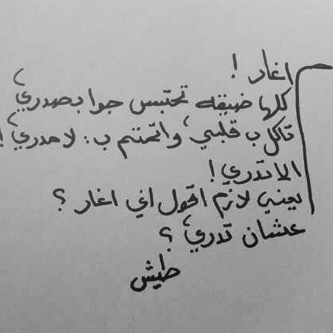 اغار !
كلها ضيقه تحتبس جوا بصدري
تاكل ب قلبي، واتمتم ب: لا مدري !
الا تدري !
يعني لازم اقول اني اغار ؟
عشان تدري ؟
طيش